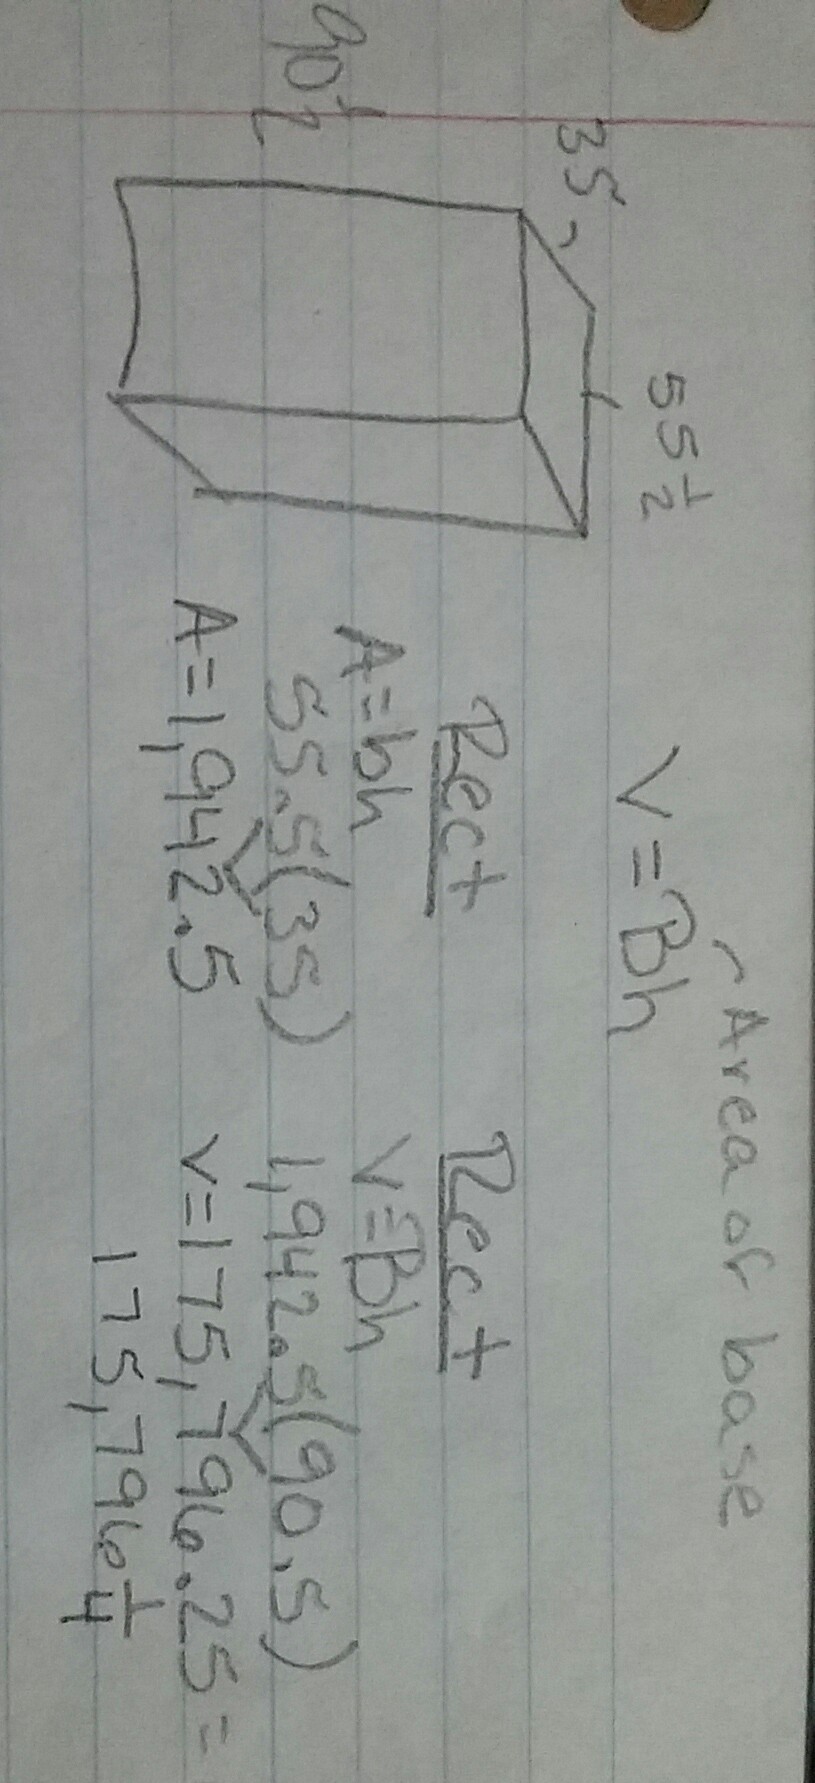 Area of base
V = Bh
55 1/2
35
90 1/2
Rect
A = bh
55.5(35)
A = 1,942.5
Rect
V = Bh
1,942.5(90.5)
V = 175,796.25 =
175,796 1/4